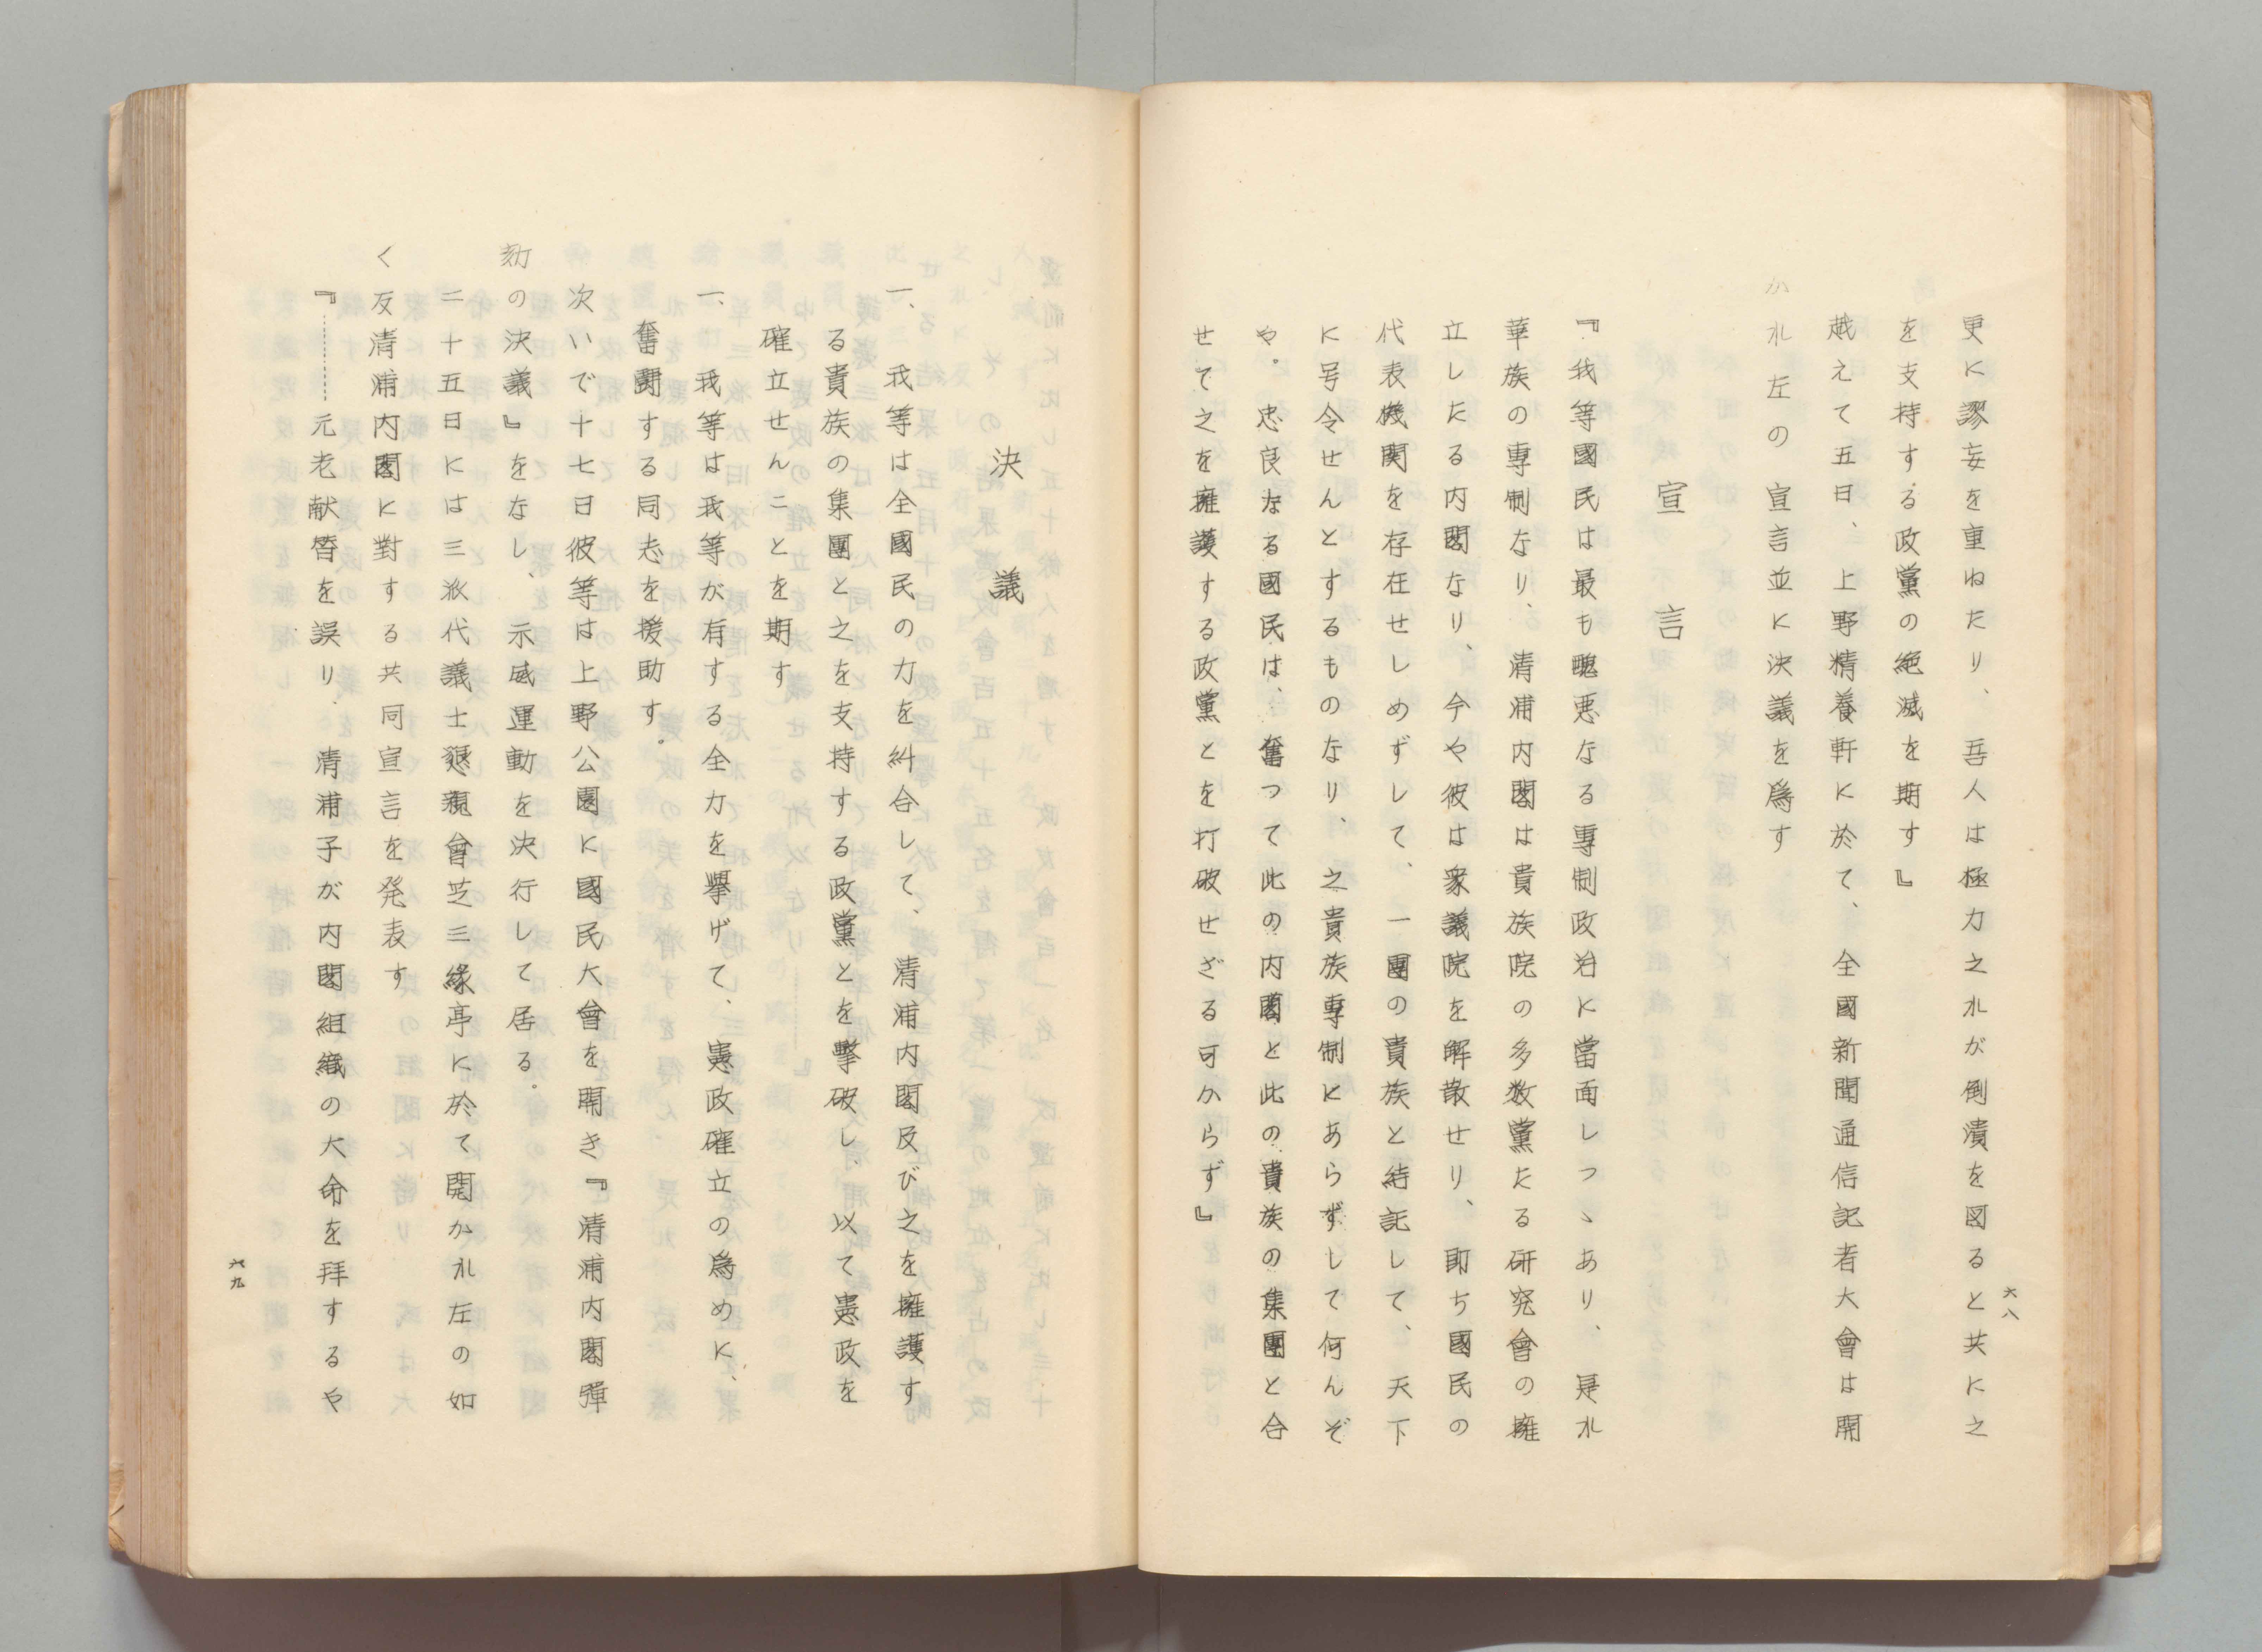 更に謬妄を重ねたり、吾人は極力之れが倒潰を図ると共に之
を支持する政黨の絶滅を期す』
越えて五日、上野精養軒に於て、全國新聞通信記者大會は開
かれ左の宣言並に決議を為す
宣言
『我等國民は最も醜悪なる專制政治に當面しつゝあり、是れ
華族の專制なり、清浦内閣は貴族院の多数黨たる研究會の擁
立したる内閣なり、今や彼は衆議院を解散せり、即ち國民の
代表機関を存在せしめずして、一團の貴族と結託して、天下
に号令せんとするものなり、之貴族專制にあらずして何んぞ
や。忠良なる國民は、奮つて此の内閣と此の貴族の集團と合
せて之を擁護する政黨とを打破せざる可からず』
六八
決議
一、我等は全國民の力を糾合して、清浦内閣及び之を擁護す
る貴族の集團と之を支持する政黨とを撃破し、以て憲政を
確立せんことを期す
一、我等は我等が有する全力を擧げて、憲政確立の為めに、
奮闘する同志を援助す。
次いで十七日彼等は上野公園に國民大會を開き『清浦内閣彈
劾の決議』をなし、示威運動を決行して居る。
二十五日には三派代議士懇親會芝三緣亭に於て開かれ左の如
く反清浦内閣に對する共同宣言を発表す
『………元老献替を誤り、清浦子が内閣組織の大命を拜するや
六九